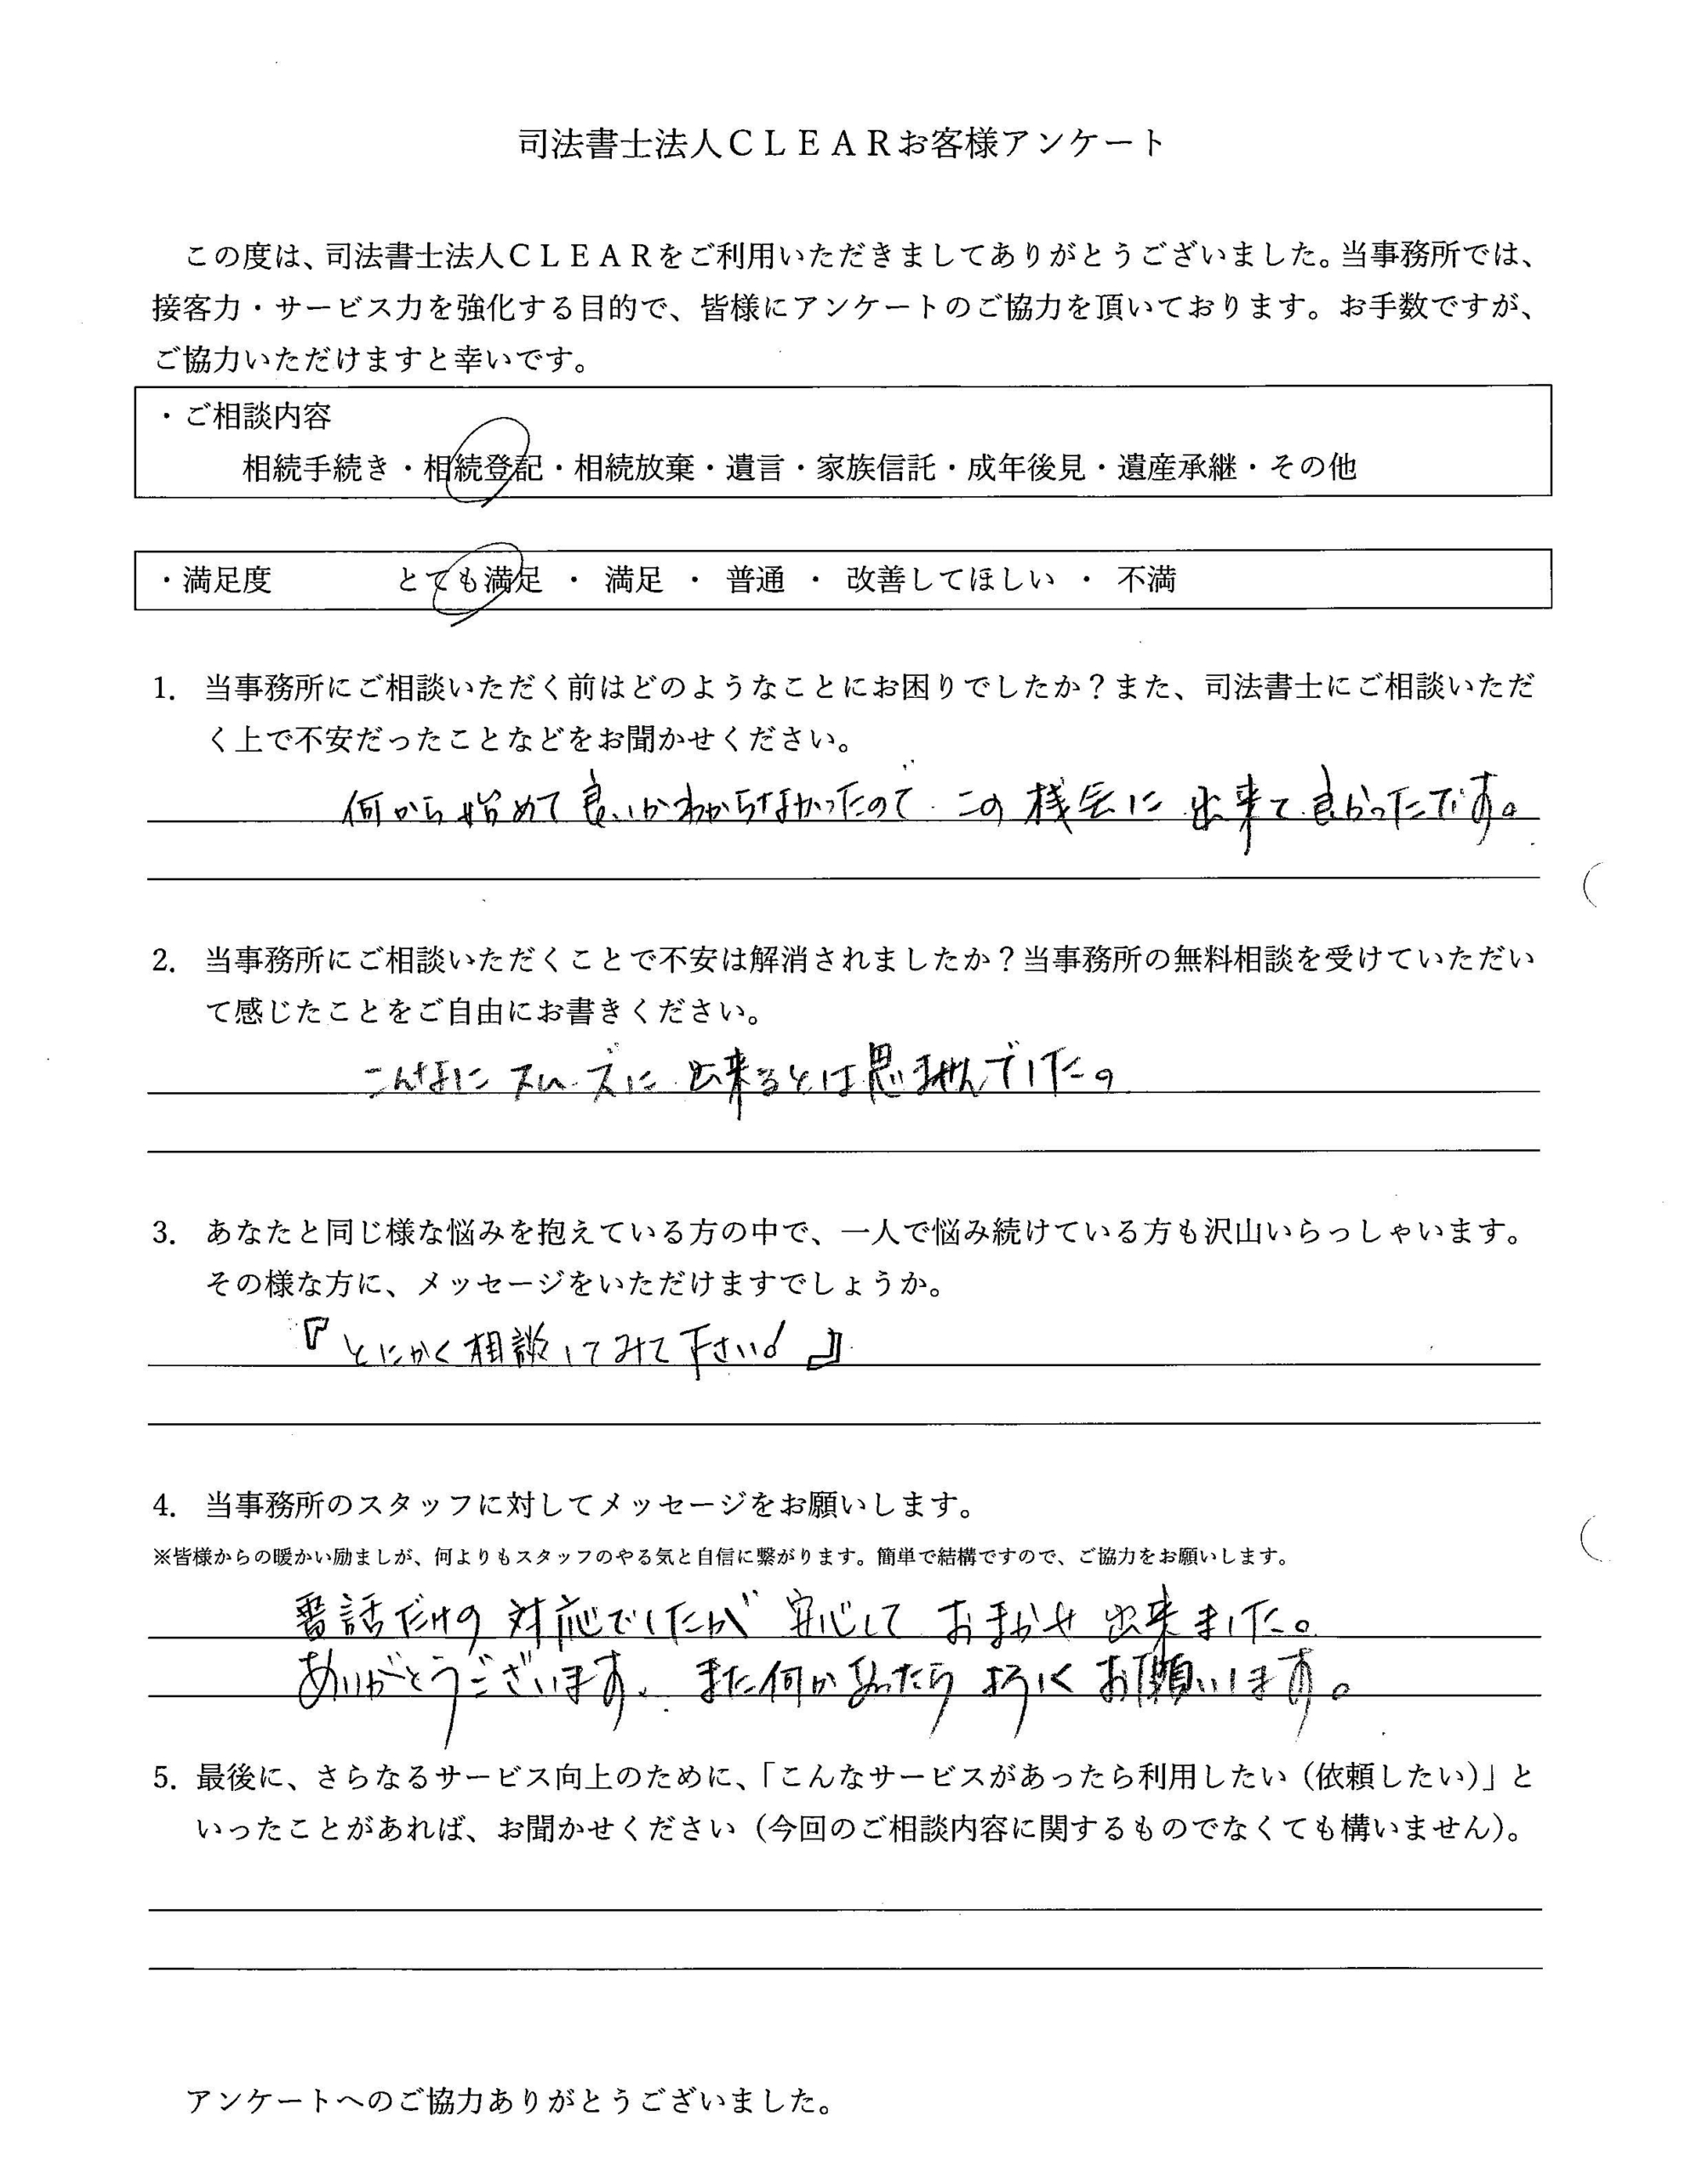 司法書士法人ＣＬＥＡＲお客様アンケート
この度は、司法書士法人ＣＬＥＡＲをご利用いただきましてありがとうございました。当事務所では、
接客力・サービス力を強化する目的で、皆様にアンケートのご協力を頂いております。お手数ですが、
ご協力いただけますと幸いです。
・ご相談内容
相続手続き・相続登記・相続放棄・遺言・家族信託・成年後見・遺産承継・その他
・満足度　とても満足 ・ 満足 ・ 普通 ・ 改善してほしい ・ 不満
1. 当事務所にご相談いただく前はどのようなことにお困りでしたか？また、司法書士にご相談いただ
く上で不安だったことなどをお聞かせください。
何から始めて良いかわからなかったので この機会に 出来て良かったです。
2. 当事務所にご相談いただくことで不安は解消されましたか？当事務所の無料相談を受けていただい
て感じたことをご自由にお書きください。
こんなに スムーズに 出来るとは思いませんでした。
3. あなたと同じ様な悩みを抱えている方の中で、一人で悩み続けている方も沢山いらっしゃいます。
その様な方に、メッセージをいただけますでしょうか。
『とにかく相談してみて下さい！』
4. 当事務所のスタッフに対してメッセージをお願いします。
※皆様からの暖かい励ましが、何よりもスタッフのやる気と自信に繋がります。簡単で結構ですので、ご協力をお願いします。
電話だけの 対応でしたが 安心して おまかせ 出来ました。
ありがとうございます。また何かあったら よろしく お願いします。
5. 最後に、さらなるサービス向上のために、「こんなサービスがあったら利用したい（依頼したい）」と
いったことがあれば、お聞かせください（今回のご相談内容に関するものでなくても構いません）。
アンケートへのご協力ありがとうございました。